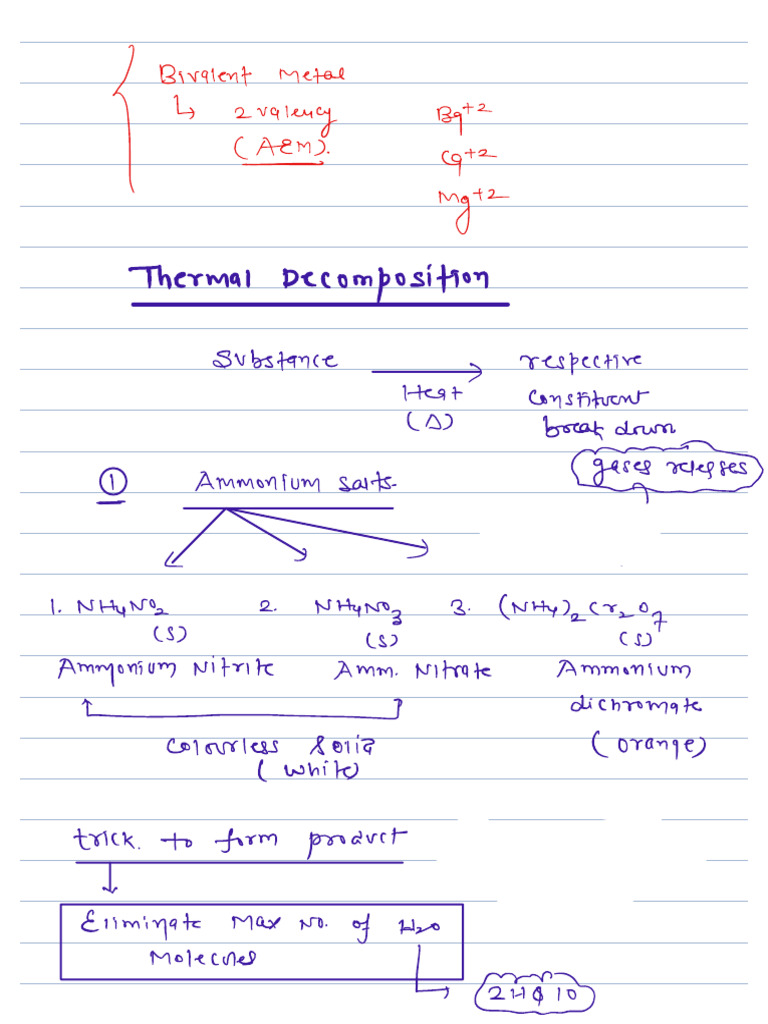 Bivalent Metal
↳ 2 valency Ba+2
(AEM). Ca+2
Mg+2
Thermal Decomposition
Substance → respective
Heat constituent
(Δ) break down
gases releases
① Ammonium salts.
1. NH4NO2 2. NH4NO3 3. (NH4)2Cr2O7
(S) (S) (S)
Ammonium Nitrite Amm. Nitrate Ammonium
dichromate
colourless Solid (orange)
(white)
trick. to form product
Eliminate Max No. of H2O
Molecules
2H & 1O